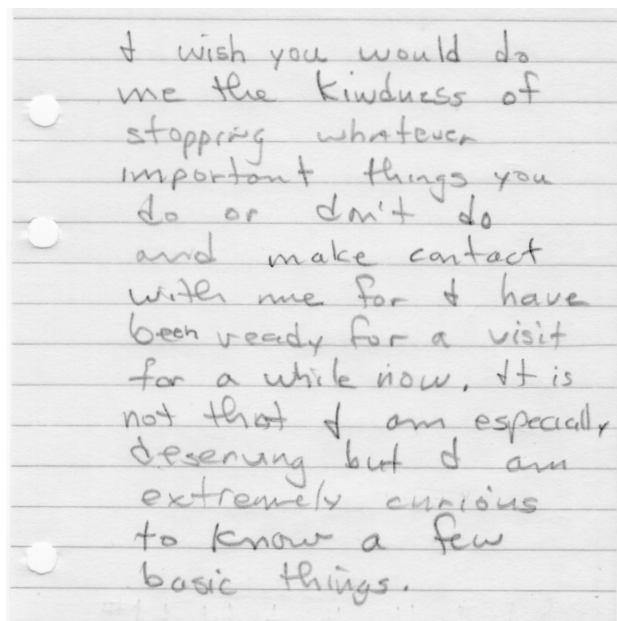 I wish you would do
me the kindness of
stopping whatever
important things you
do or don't do
and make contact
with me for I have
been ready for a visit
for a while now. It is
not that I am especially
deserving but I am
extremely curious
to know a few
basic things.